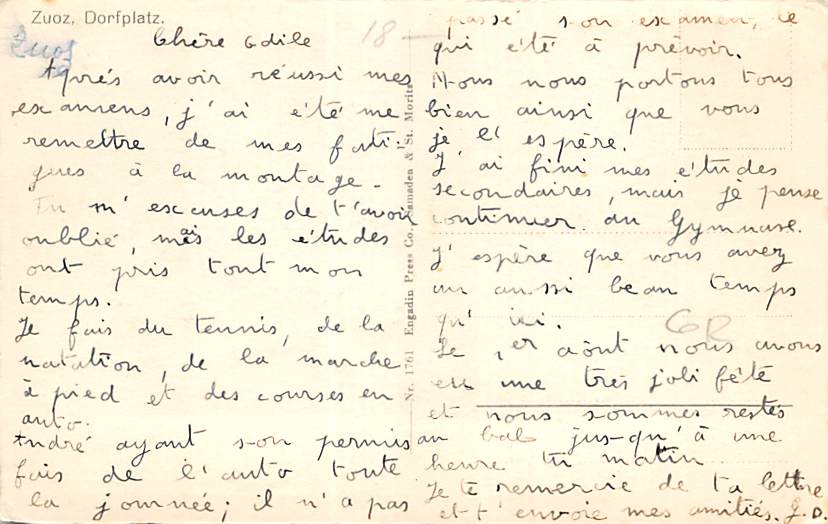 Zuoz, Dorfplatz.
Zuoz
18 —
Chère Odile
Après avoir réussi mes
examens, j'ai été me
remettre de mes fati-
gues à la montage.
Tu m'excuses de t'avoir
oublié, mais les études
ont pris tout mon
temps.
Je fais du tennis, de la
natation, de la marche
à pied et des courses en
auto.
André ayant son permis
fais de l'auto toute
la journée; il n'a pas
Nr. 1761 Engadin Press Co., Samaden & St. Moritz
passé son examen, ce
qui été à prévoir.
Nous nous portons tous
bien ainsi que vous
je l'espère.
J'ai fini mes études
secondaires, mais je pense
continuer au Gymnase.
J'espère que vous avez
un aussi beau temps
qu'ici.
Le 1er août nous avons
eu une très joli fête
et nous sommes restés
au bal jus-qu'à une
heure tu matin
Je te remercie de ta lettre
et t'envoie mes amitiés. J.D.